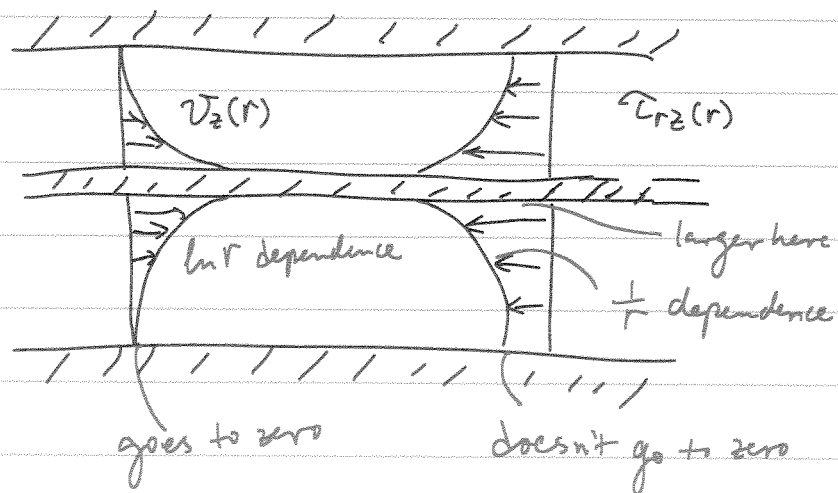 v_z(r)
τ_rz(r)
ln r dependence
larger here
1/r dependence
goes to zero
doesn't go to zero